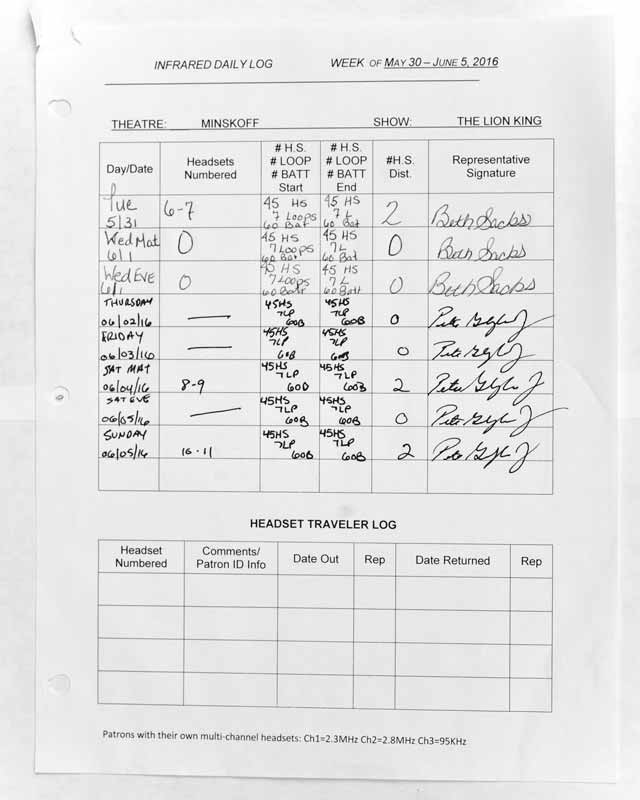 INFRARED DAILY LOG WEEK OF MAY 30 – JUNE 5, 2016
THEATRE: MINSKOFF SHOW: THE LION KING
Day/Date Headsets Numbered # H.S. # LOOP # BATT Start # H.S. # LOOP # BATT End #H.S. Dist. Representative Signature
Tue 5/31 6-7 45 HS 7 Loops 60 Bat 45 HS 7 L 60 Bat 2 Beth Sacks
Wed Mat 6/1 0 45 HS 7 Loops 60 Bat 45 HS 7 L 60 Bat 0 Beth Sacks
Wed Eve 6/1 0 45 HS 7 Loops 60 Batt 45 HS 7 L 60 Batt 0 Beth Sacks
THURSDAY 06/02/16 — 45HS 7LP 60B 45HS 7LP 60B 0 Pete
FRIDAY 06/03/16 — 45HS 7LP 60B 45HS 7LP 60B 0 Pete
SAT MAT 06/04/16 8-9 45HS 7LP 60B 45HS 7LP 60B 2 Pete
SAT EVE 06/05/16 — 45HS 7LP 60B 45HS 7LP 60B 0 Pete
SUNDAY 06/05/16 10-11 45HS 7LP 60B 45HS 7LP 60B 2 Pete
HEADSET TRAVELER LOG
Headset Numbered Comments/ Patron ID Info Date Out Rep Date Returned Rep
Patrons with their own multi-channel headsets: Ch1=2.3MHz Ch2=2.8MHz Ch3=95KHz